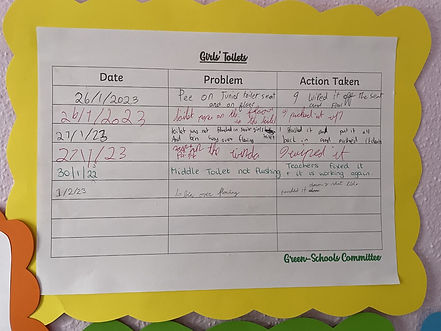 Girls' Toilets
Date Problem Action Taken
26/1/2023 Pee on Junior toilet seat and on floor I wiped it off the seat and floor
26/1/2023 toilet paper on the floor in the toilet I picked it up
27/1/23 toilet was not flushed in girls and bin was over flowing I flushed it and put it all back in and pushed it down
27/1/23 on the window I wiped it
30/1/22 Middle Toilet not flushing Teachers fixed it + it is working again.
1/2/23 over flowing pushed it down
Green-Schools Committee